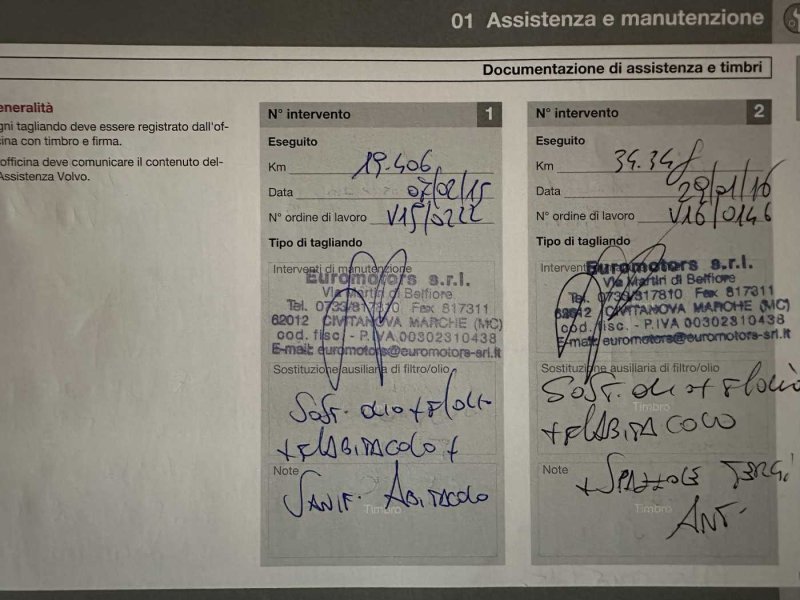 01 Assistenza e manutenzione
Documentazione di assistenza e timbri
eneralità
gni tagliando deve essere registrato dall'of-
cina con timbro e firma.
officina deve comunicare il contenuto del-
Assistenza Volvo.
N° intervento 1
Eseguito
Km 19.406
Data 07/02/15
N° ordine di lavoro V15/0222
Tipo di tagliando
Interventi di manutenzione
Euromotors s.r.l.
Via Martiri di Belfiore
Tel. 0733/817310 Fax 817311
62012 CIVITANOVA MARCHE (MC)
cod. fisc. - P.IVA 00302310438
E-mail: euromotors@euromotors-srl.it
Sostituzione ausiliaria di filtro/olio
Sost. olio + f.olio
+ f.abitacolo +
Note
Sanif. Abitacolo
Timbro
N° intervento 2
Eseguito
Km 34.34
Data 29/01/16
N° ordine di lavoro V16/0146
Tipo di tagliando
Interventi
Euromotors s.r.l.
Via Martiri di Belfiore
Tel. 0733/817310 Fax 817311
62012 CIVITANOVA MARCHE (MC)
cod. fisc. - P.IVA 00302310438
E-mail: euromotors@euromotors-srl.it
Sostituzione ausiliaria di filtro/olio
Sost. olio + f.olio
Timbro
+ f.abitacolo
Note
+ Spazzole Tergi
Timbro
Ant.